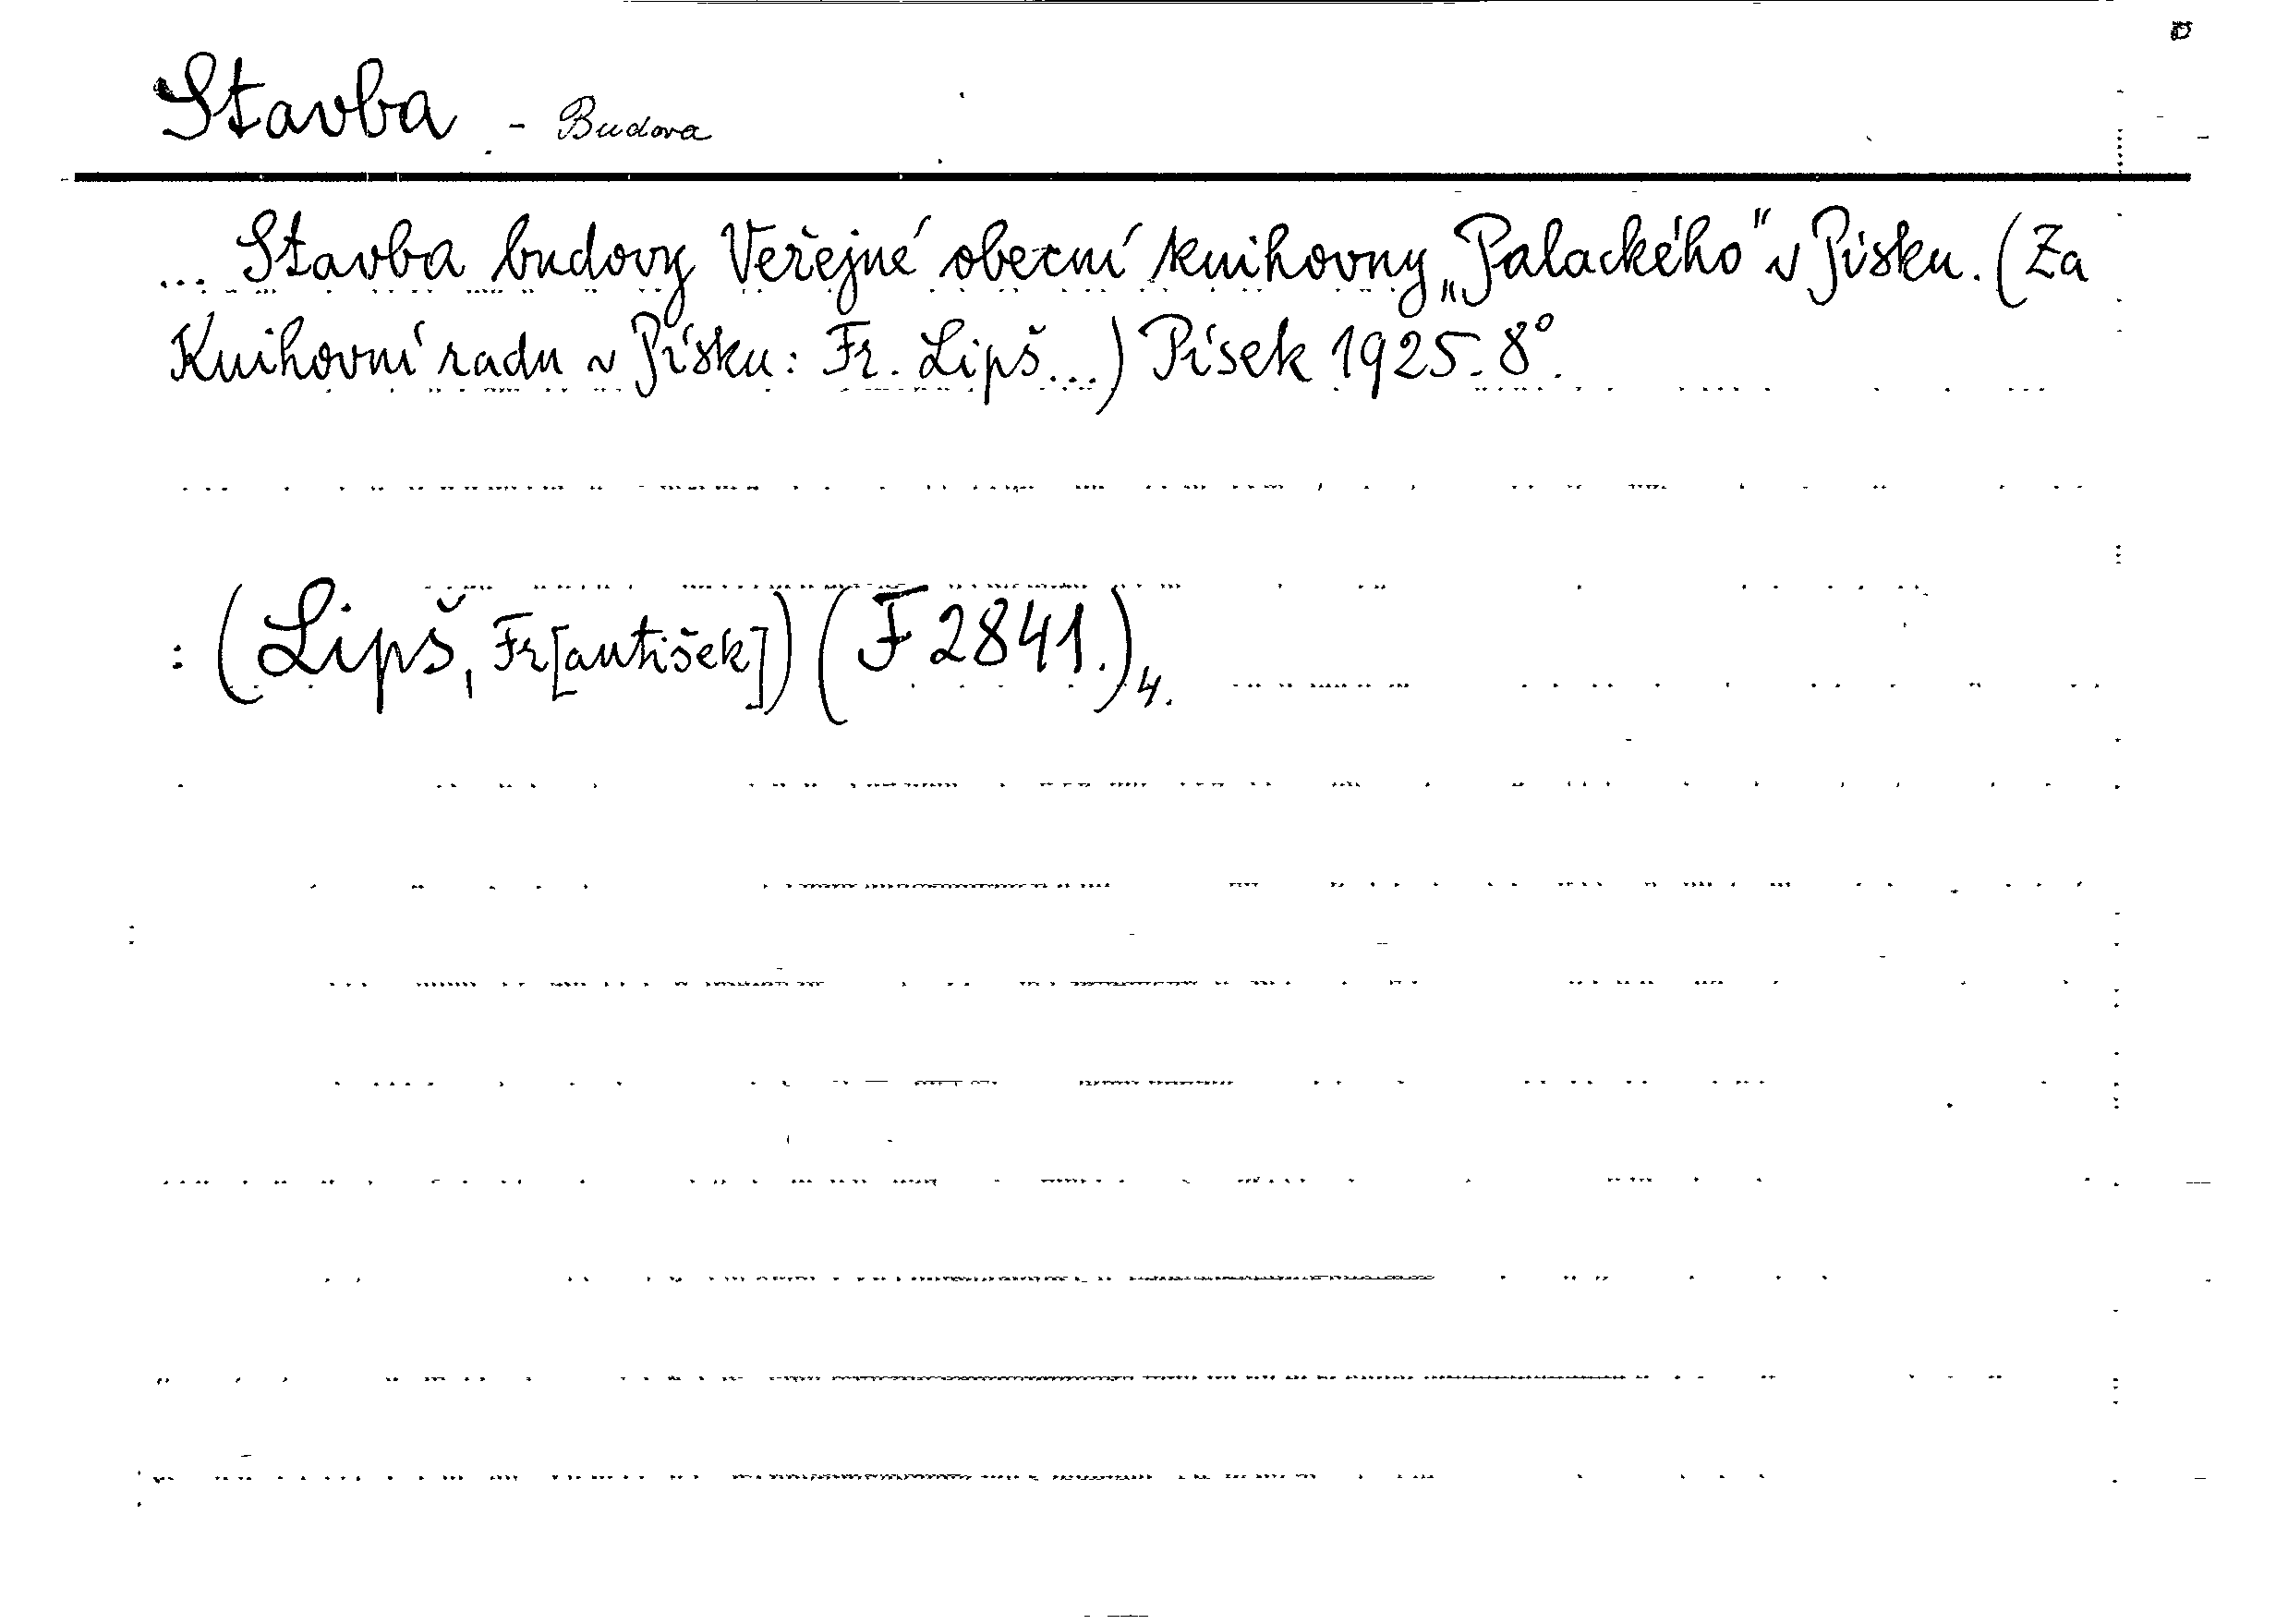 Stavba - Budova
... Stavba budovy Veřejné obecní knihovny „Palackého" v Písku. (Za
Knihovní radu v Písku: Fr. Lipš...) Písek 1925. 8°.
: (Lipš, Fr[antišek]) (F 2841.) 4.